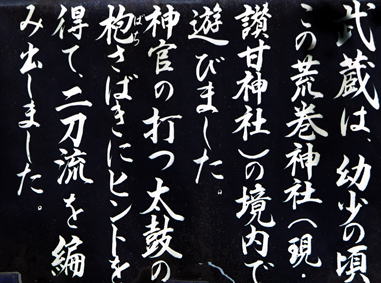 武蔵は、幼少の頃
この荒巻神社(現・
讃甘神社)の境内で
遊びました。
神官の打つ太鼓の
枹さばきにヒントを
ばち
得て、二刀流を編
み出しました。